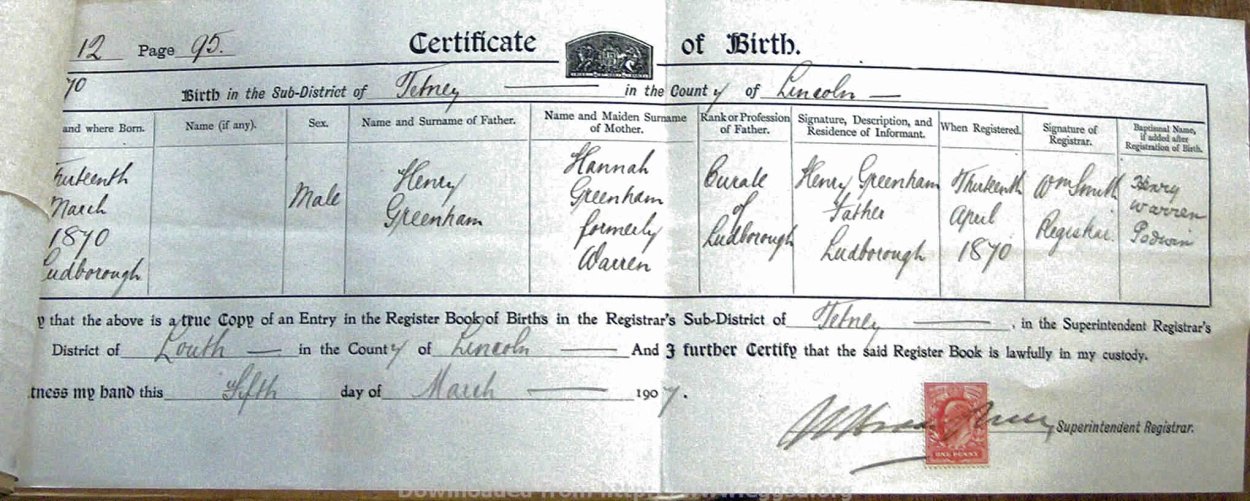 12 Page 95. Certificate of Birth.
70 Birth in the Sub-District of Tetney in the County of Lincoln
and where Born. Name (if any). Sex. Name and Surname of Father. Name and Maiden Surname of Mother. Rank or Profession of Father. Signature, Description, and Residence of Informant. When Registered. Signature of Registrar. Baptismal Name, if added after Registration of Birth.
Thirteenth
March
1870
Ludborough
Male
Henry
Greenham
Hannah
Greenham
formerly
Warren
Curate
of
Ludborough
Henry Greenham
Father
Ludborough
Thirteenth
April
1870
Wm Smith
Registrar.
Henry
Warren
Godwin
y that the above is a true Copy of an Entry in the Register Book of Births in the Registrar's Sub-District of Tetney, in the Superintendent Registrar's
District of Louth in the County of Lincoln And I further Certify that the said Register Book is lawfully in my custody.
tness my hand this Fifth day of March 1907.
Superintendent Registrar.
ONE PENNY
Downloaded from